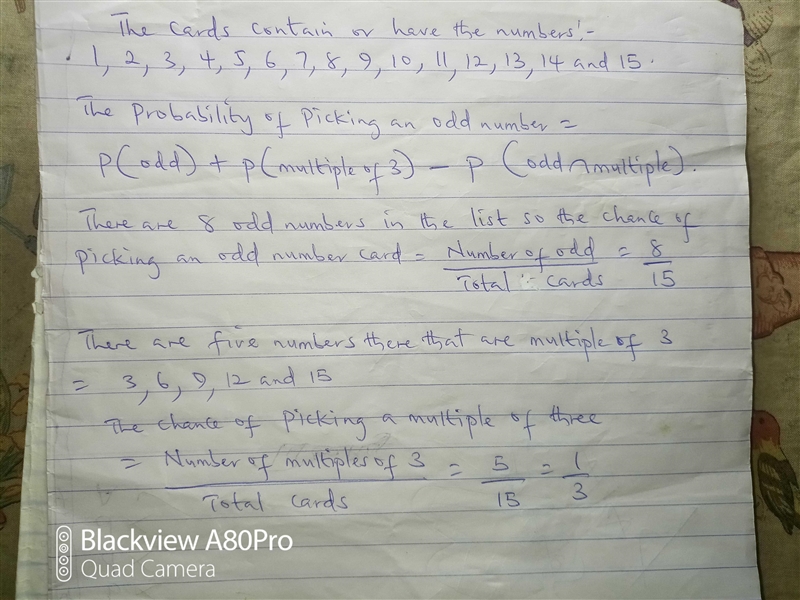 The cards contain or have the numbers:-
1, 2, 3, 4, 5, 6, 7, 8, 9, 10, 11, 12, 13, 14 and 15.
The Probability of Picking an odd number =
P(odd) + P(multiple of 3) - P (odd ∩ multiple).
There are 8 odd numbers in the list so the chance of
picking an odd number card = Number of odd / Total cards = 8/15
There are five numbers there that are multiple of 3
= 3, 6, 9, 12 and 15
The chance of Picking a multiple of three
= Number of multiples of 3 / Total cards = 5/15 = 1/3
Blackview A80Pro
Quad Camera